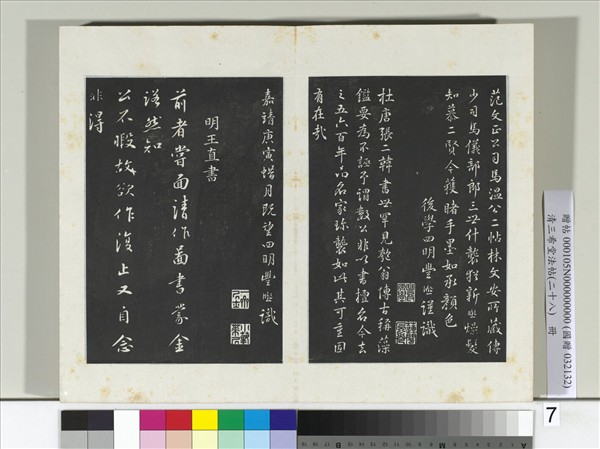 范文正公司馬溫公二帖林文安所藏傳
少司馬儀部郎三世什襲猶新熙燥髮
知慕二賢今獲睹手墨如承顏色
後學四明豐熙謹識
杜唐張二韓書世罕見數翁傳古稱藻
鑑要為不誣予謂數公非以書擅名今去
之五六百年而名家珍襲如此其可重固
有在哉
嘉靖庚寅蜡月既望四明豐熙識
明王直書
前者嘗面請作圖書蒙金
諾然知
公不暇故欲作復止又自念
非得
贈帖 000105N000000000 (國贈 032132)
清三希堂法帖(二十八) 冊
7